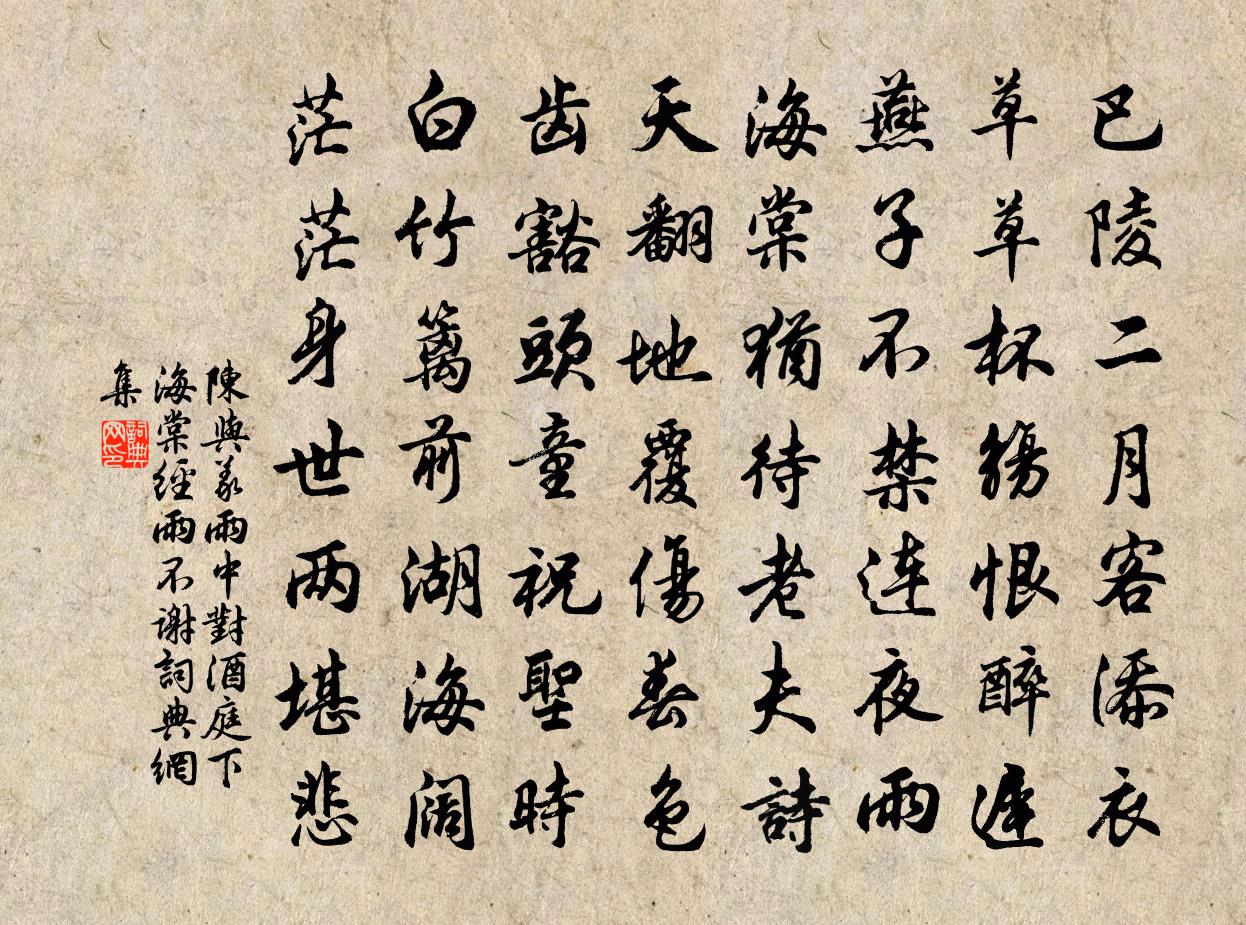 巴陵二月客添衣
草草杯觴恨醉遲
燕子不禁連夜雨
海棠猶待老夫詩
天翻地覆傷春色
齒豁頭童祝聖時
白竹籬前湖海闊
茫茫身世兩堪悲
陳與義雨中對酒庭下
海棠經雨不謝詞典網
集
詞典网印